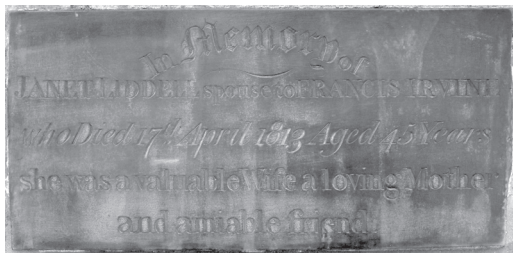 In Memory of
JANET LIDDELL spouse to FRANCIS IRVINE
who Died 17th April 1813 Aged 43 Years
she was a valuable Wife a loving Mother
and amiable friend